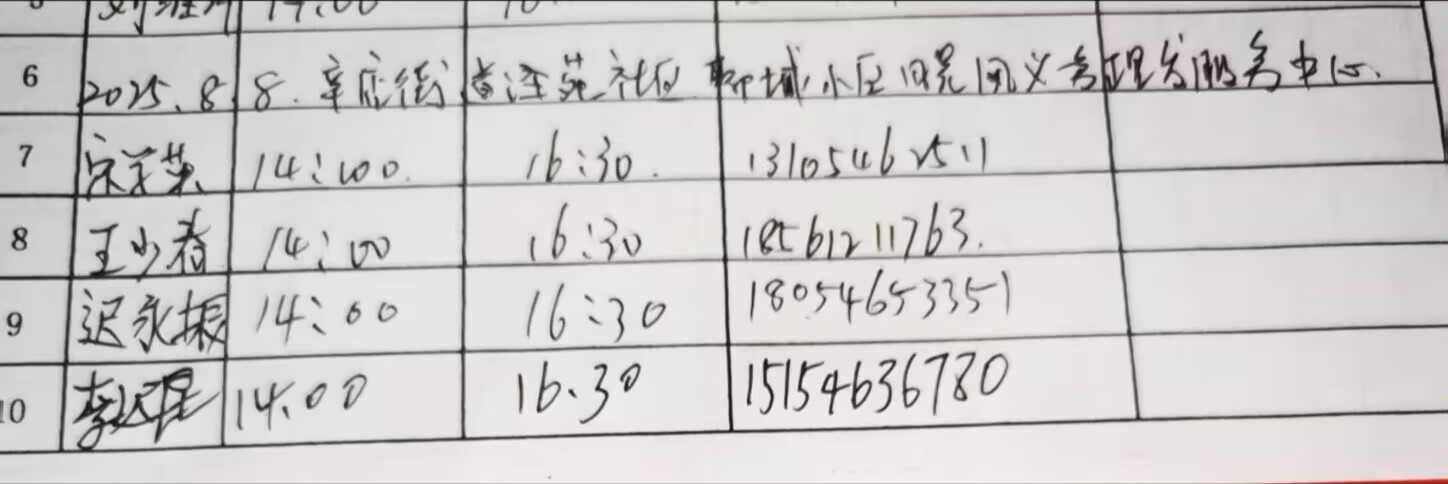 14:00
6 2025.8.8. 辛店街 社区 小区 义务理发服务中心.
7 14:00. 16:30. 13105462511
8 王少春 14:00 16:30 18561211763.
9 迟永振 14:00 16:30 18054653351
10 李 14.00 16.30 15154636780